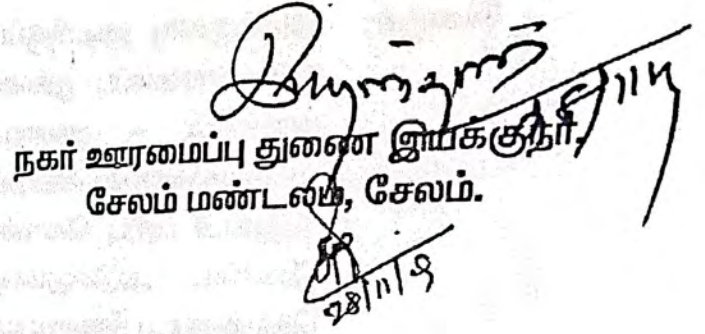 நகர் ஊரமைப்பு துணை இயக்குநர்,
சேலம் மண்டலம், சேலம்.
28/11/9